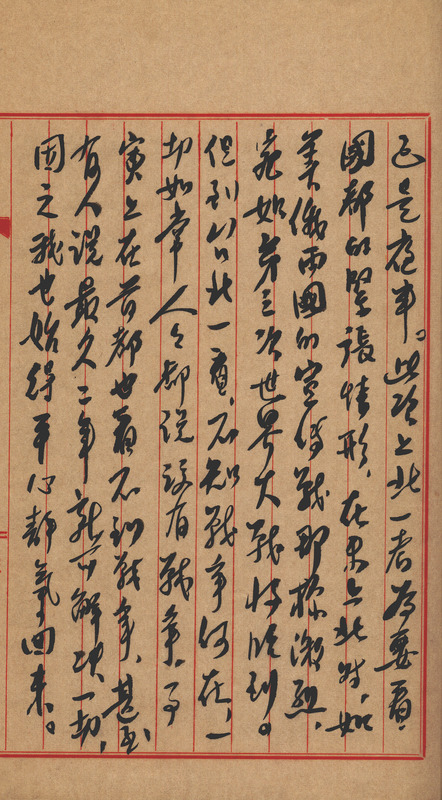 已是庖事。此次上北一者為要看看
國都的緊張情形，在未上北时，如
美俄兩國的宣傳戰那樣激烈，
宛如第三次世界大戰將臨到。
但到台北一看，不知戰爭何在，一
切如常人々都說没有戰爭。事
實上在首都也看不到戰爭，甚至
有人說最久二年就可解決一切，
因之我也始得平心靜氣回來。